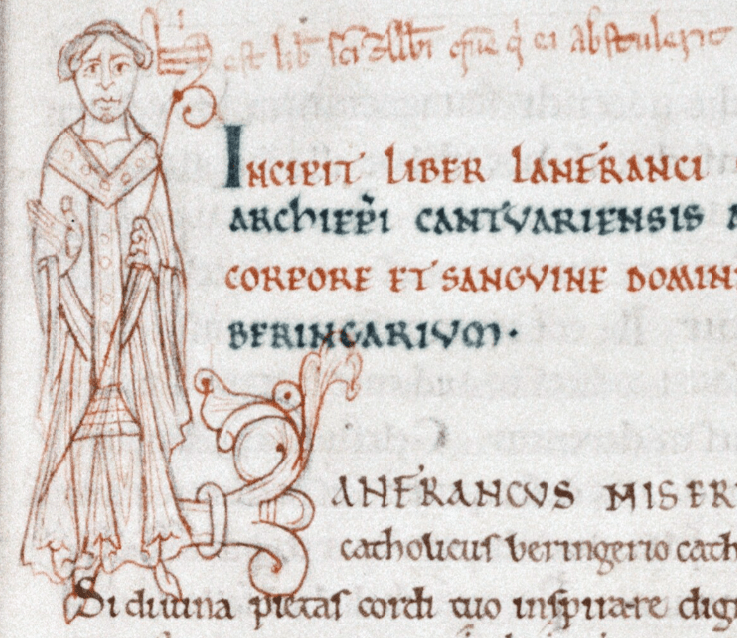 Hic est lib̄ sc̄i Albi quē q̇ ei abstulerit
INCIPIT LIBER LANFRANCI
ARCHIEP̄I CANTVARIENSIS A
CORPORE ET SANGVINE DOMINI
BERINGARIVM·
LANFRANCVS MISERI
catholicus beringerio cath
Si diuina pietas cordi tuo inspirare dig